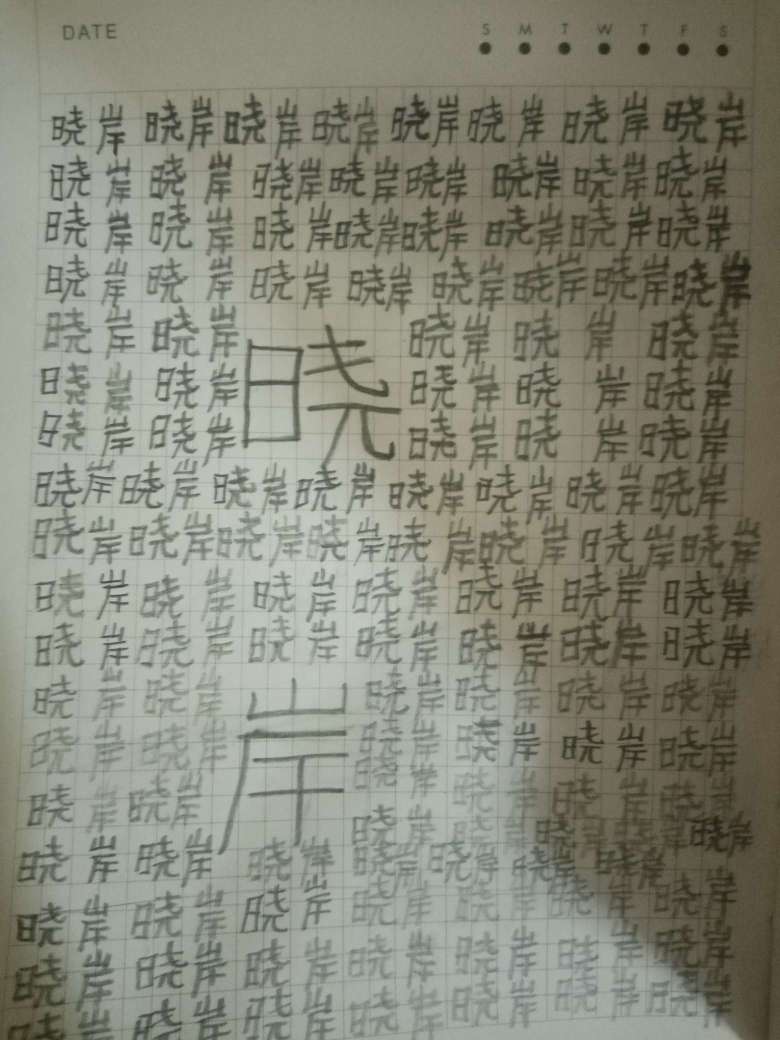 DATE S M T W T F S
晓岸 晓岸 晓岸 晓岸 晓岸 晓岸 晓岸 晓岸
晓岸 晓岸 晓岸 晓岸 晓岸 晓岸 晓岸 晓岸
晓岸 晓岸 晓岸 晓岸 晓岸 晓岸 晓岸 晓岸
晓岸 晓岸 晓岸 晓岸 晓岸 晓岸 晓岸 晓岸
晓岸 晓岸 晓岸 晓岸 晓岸
晓岸 晓岸 晓 晓岸 晓岸 晓岸
晓岸 晓岸 晓岸 晓岸 晓岸
晓岸 晓岸 晓岸 晓岸 晓岸 晓岸 晓岸 晓岸
晓岸 晓岸 晓岸 晓岸 晓岸 晓岸 晓岸 晓岸
晓岸 晓岸 晓岸 晓岸 晓岸 晓岸 晓岸
晓岸 晓岸 晓岸 晓岸 晓岸 晓岸 晓岸
晓岸 晓岸 晓岸 晓岸 晓岸 晓岸
晓岸 晓岸 岸 晓岸 晓岸 晓岸 晓岸
晓岸 晓岸 晓岸 晓岸 晓岸 晓岸
晓岸 晓岸 晓岸 晓岸 晓岸
晓岸 晓岸 晓岸 晓岸 晓岸 晓岸 晓岸
晓岸 晓岸 晓岸 晓岸 晓岸 晓岸 晓岸
晓岸 晓岸 晓岸 晓岸 晓岸 晓岸 晓岸
晓岸 晓岸 晓岸 晓岸 晓岸 晓岸 晓岸